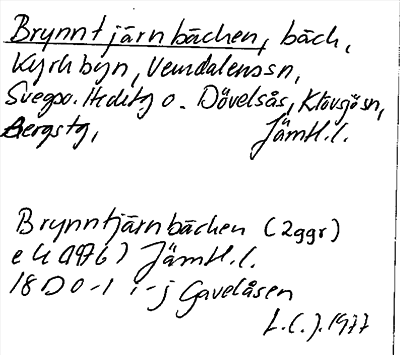 Brynntjärnbäcken, bäck,
Kyrkbyn, Vemdalens sn,
Svegs o. Hede tg o. Dövelsås, Klövsjö sn,
Bergs tg, Jämtl.l.
Brynntjärnbäcken (2ggr)
ek (1976) Jämtl.l.
18D 0-1 i-j Gavelåsen
L.C.J. 1977